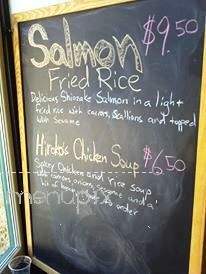 Salmon $9.50
Fried Rice
Delicious Shiozake Salmon in a light
fried rice with carrots, scallions and topped
with Sesame
Hiroko's Chicken Soup $6.50
Spicy Chicken and rice soup
with carrots, onions, sesame and a
order